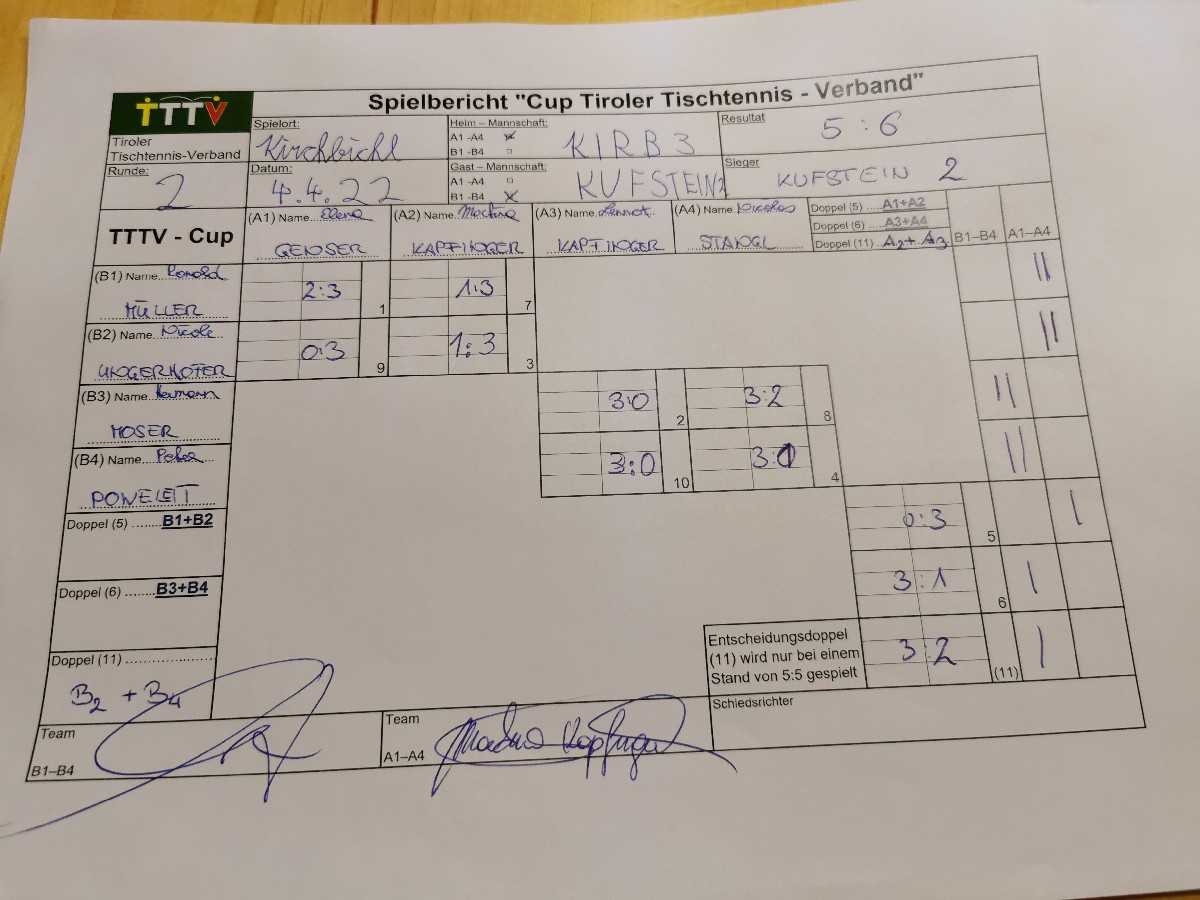 TTTV
Tiroler
Tischtennis-Verband
Spielbericht "Cup Tiroler Tischtennis - Verband"
Spielort:
Kirchbichl
Heim – Mannschaft:
A1 -A4
B1 -B4
KIRB 3
Resultat
5 : 6
Runde:
2
Datum:
4.4.22
Gast – Mannschaft:
A1 -A4
B1 -B4
KUFSTEIN 2
Sieger
KUFSTEIN 2
TTTV - Cup
(A1) Name Elena
GENOSER
(A2) Name Martina
KAPFINGER
(A3) Name Lennart
KAPFINGER
(A4) Name Nikolas
STANGL
Doppel (5) A1+A2
Doppel (6) A3+A4
Doppel (11) A2+A3
B1–B4
A1–A4
(B1) Name Ronald
MÜLLER
2:3
1
1:3
7
||
(B2) Name Nicole
UNGERHOFER
0:3
9
1:3
3
||
(B3) Name Hermann
MOSER
3:0
2
3:2
8
||
(B4) Name Peter
PONELEIT
3:0
10
3:0
4
||
Doppel (5) ........ B1+B2
0:3
5
|
Doppel (6) ........ B3+B4
3:1
6
|
Doppel (11) ........
B2 + B4
Entscheidungsdoppel
(11) wird nur bei einem
Stand von 5:5 gespielt
3:2
(11)
|
Team
B1–B4
Team
A1–A4
Martina Kapfinger
Schiedsrichter